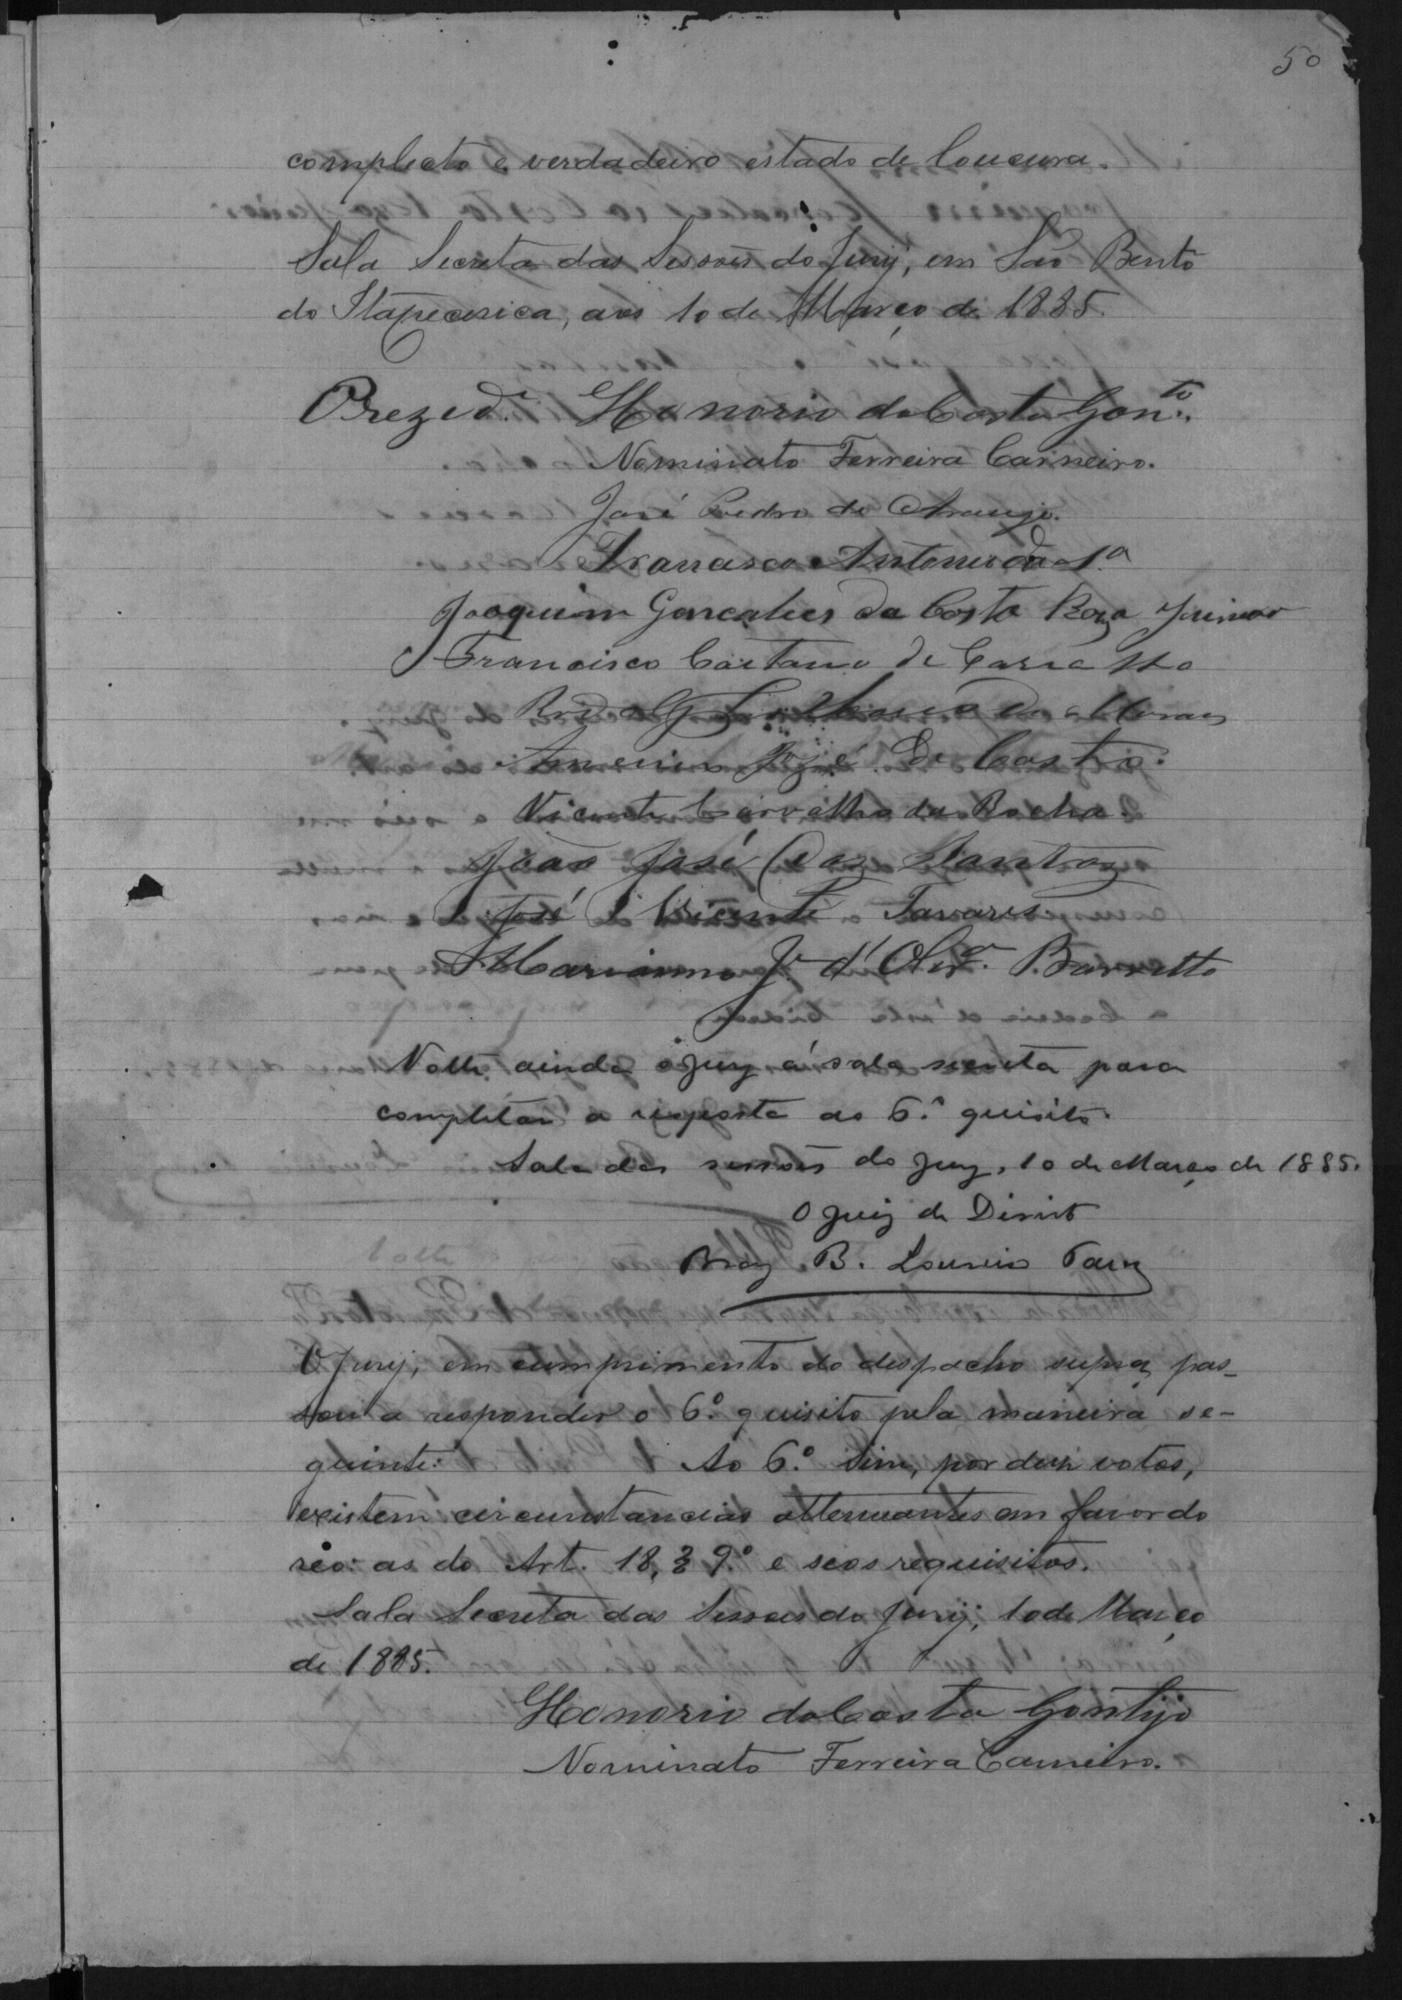 50
completo e verdadeiro estado de loucura.
Sala Secreta das Sessões do Jury, em São Bento
do Itapecerica, aos 10 de Março de 1885.
Prezid.e Honorio da Costa Gon.to
Nominato Ferreira Carneiro.
José Pedro de Araujo.
Francisco Antonio da S.a
Joaquim Gonçalves da Costa Roza Junior
Francisco Caetano de Carvalho
de Moraes
Americo José de Castro.
Vicente Carvalho da Rocha.
João José dos Santos
José Vicente Tavares
Marianno J.e d'Olivr.a Barretto
Volte ainda o jury á sala secreta para
completar a resposta ao 6.º quisito.
Sala das sessões do jury, 10 de Março de 1885.
O Juiz de Direito
Braz B. Loureiro
O Jury, em cumprimento do despacho supra, pas-
sou a responder o 6.º quisito pela maneira se-
guinte: Ao 6.º Sim, por dez votos,
existem circunstancias attenuantes em favor do
réo: as do Art. 18, § 9.º e seos requisitos.
Sala Secreta das Sessoes do Jury, 10 de Março
de 1885.
Honorio da Costa Gontijo
Nominato Ferreira Carneiro.